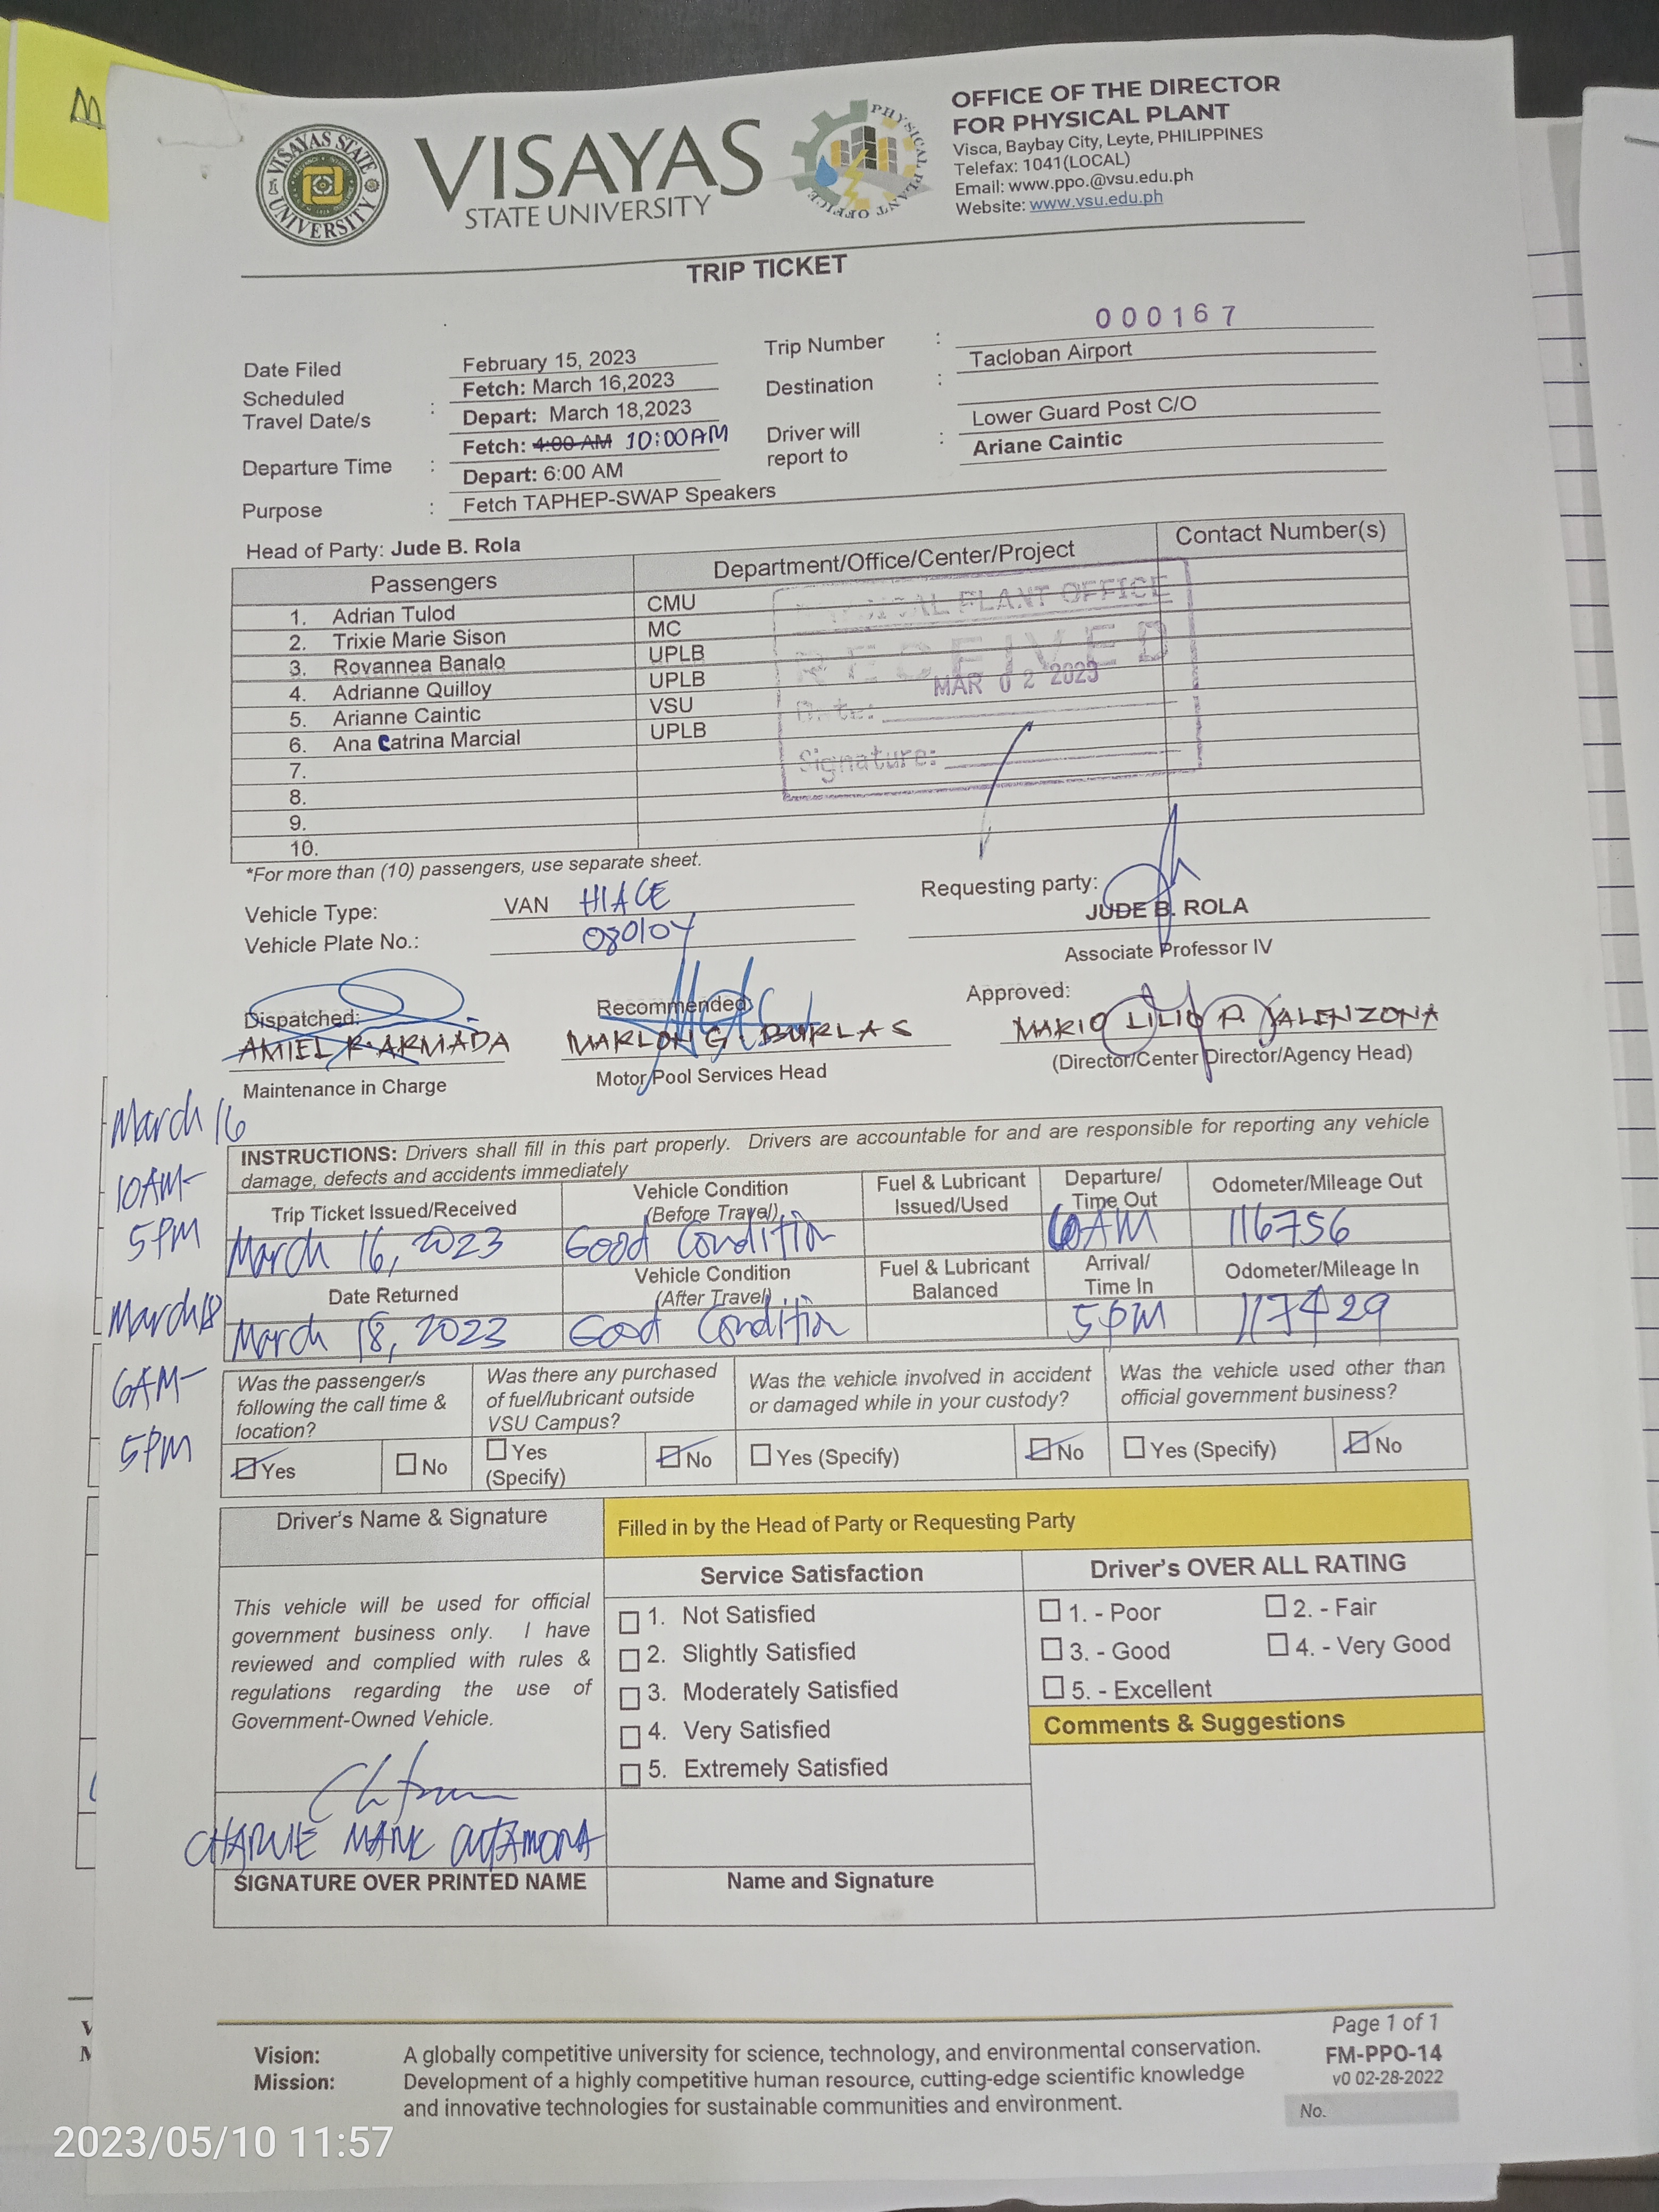 VISAYAS STATE UNIVERSITY
VISAYAS
STATE UNIVERSITY
PHYSICAL PLANT OFFICE
OFFICE OF THE DIRECTOR
FOR PHYSICAL PLANT
Visca, Baybay City, Leyte, PHILIPPINES
Telefax: 1041(LOCAL)
Email: www.ppo.@vsu.edu.ph
Website: www.vsu.edu.ph
TRIP TICKET
Trip Number : 000167
Date Filed February 15, 2023
Destination : Tacloban Airport
Scheduled Travel Date/s : Fetch: March 16,2023
Depart: March 18,2023
Driver will report to : Lower Guard Post C/O
Ariane Caintic
Departure Time : Fetch: 4:00 AM 10:00AM
Depart: 6:00 AM
Purpose : Fetch TAPHEP-SWAP Speakers
Head of Party: Jude B. Rola
Passengers Department/Office/Center/Project Contact Number(s)
1. Adrian Tulod CMU
2. Trixie Marie Sison MC
3. Rovannea Banalo UPLB
4. Adrianne Quilloy UPLB
5. Arianne Caintic VSU
6. Ana Catrina Marcial UPLB
7.
8.
9.
10.
PHYSICAL PLANT OFFICE
RECEIVED
MAR 02 2023
Date:
Signature:
*For more than (10) passengers, use separate sheet.
Vehicle Type: VAN HIACE
Vehicle Plate No.: 080104
Requesting party:
JUDE B. ROLA
Associate Professor IV
Dispatched:
AMIEL R. ARMADA
Maintenance in Charge
Recommended:
MARLON G. BURLAS
Motor Pool Services Head
Approved:
MARIO LILIO P. VALENZONA
(Director/Center Director/Agency Head)
March 16
10AM-
5PM
March 18
6AM-
5PM
INSTRUCTIONS: Drivers shall fill in this part properly. Drivers are accountable for and are responsible for reporting any vehicle
damage, defects and accidents immediately
Trip Ticket Issued/Received Vehicle Condition (Before Travel) Fuel & Lubricant Issued/Used Departure/ Time Out Odometer/Mileage Out
March 16, 2023 Good Condition AM 116756
Date Returned Vehicle Condition (After Travel) Fuel & Lubricant Balanced Arrival/ Time In Odometer/Mileage In
March 18, 2023 Good Condition 5PM 117429
Was the passenger/s following the call time & location?
Yes No
Was there any purchased of fuel/lubricant outside VSU Campus?
Yes (Specify) No
Was the vehicle involved in accident or damaged while in your custody?
Yes (Specify) No
Was the vehicle used other than official government business?
Yes (Specify) No
Driver's Name & Signature
Filled in by the Head of Party or Requesting Party
This vehicle will be used for official
government business only. I have
reviewed and complied with rules &
regulations regarding the use of
Government-Owned Vehicle.
CHARLIE MARK
SIGNATURE OVER PRINTED NAME
Service Satisfaction
1. Not Satisfied
2. Slightly Satisfied
3. Moderately Satisfied
4. Very Satisfied
5. Extremely Satisfied
Name and Signature
Driver's OVER ALL RATING
1. - Poor 2. - Fair
3. - Good 4. - Very Good
5. - Excellent
Comments & Suggestions
Vision: A globally competitive university for science, technology, and environmental conservation.
Mission: Development of a highly competitive human resource, cutting-edge scientific knowledge
and innovative technologies for sustainable communities and environment.
Page 1 of 1
FM-PPO-14
v0 02-28-2022
No.
2023/05/10 11:57